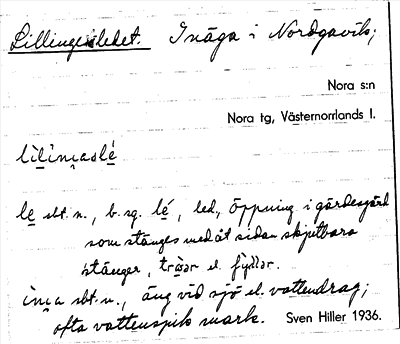 Lillingesledet. Inäga i Nordgavik;
Nora s:n
Nora tg, Västernorrlands l.
lilinmaslé
le sbt. n., b. sg. lé, led, öppning i gärdesgård
som stänges med åt sidan skjutbara
stänger, tràər el. fyllər.
ìnma sbt. n., äng vid sjö el. vattendrag;
ofta vattensjuk mark. Sven Hiller 1936.